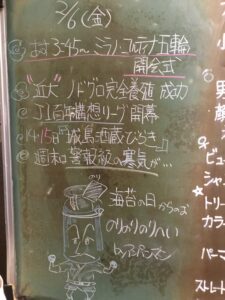 2/6(金)
あす 3:45〜 ミラノ・コルティナ五輪
開会式
"近大" ノドグロ完全養殖 成功
J1百年構想リーグ 開幕
城島酒蔵びらき
週末 警報級の寒気が…
海苔の日からのぉ
のりのりのりへい
by アンパンマン
ビュ
トリー
カラー
パーマ
ストレート